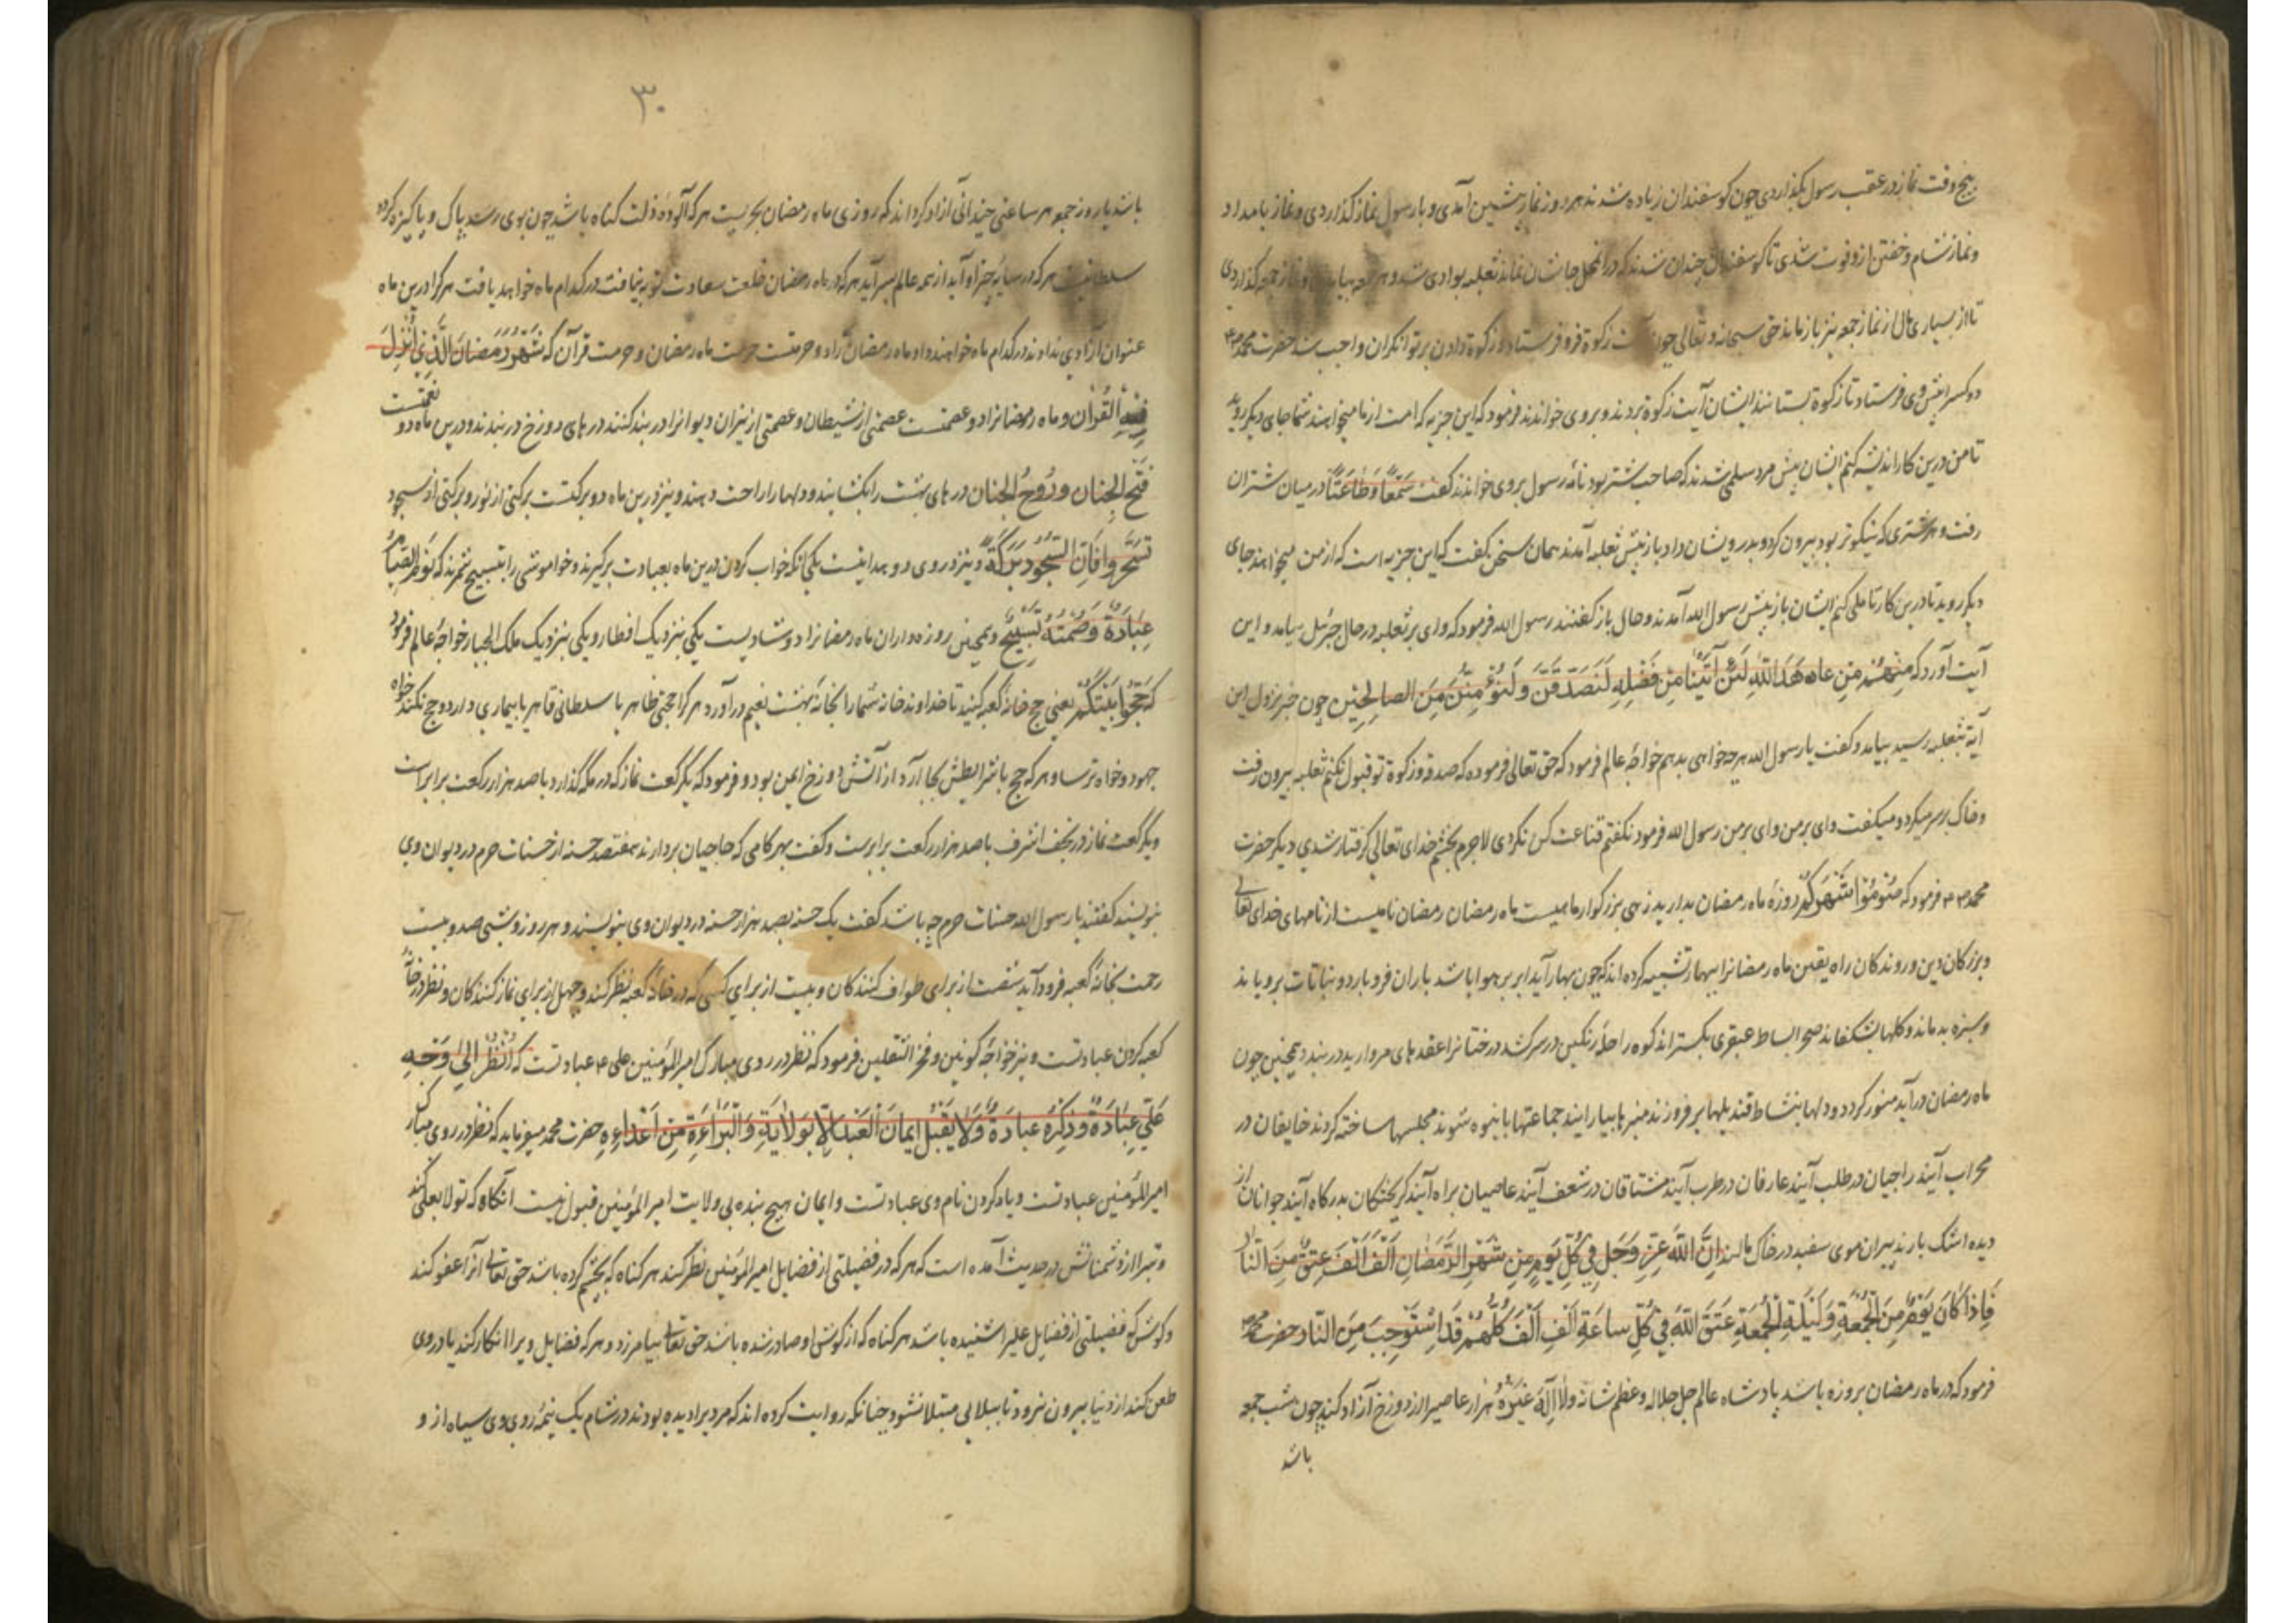 پنج وقت نماز در عقب رسول بگذاردی چون کوسفندان زیاده شدند هر روز نماز پیشین آمدی و با رسول نماز کذاردی و نماز بامداد
و نماز شام و خفتن ازو فوت شدی تا کوسفندان چندان شدند که در آن محل جاشان نماند ثعلبه بوادی شد و هر جمعه بیامدی و نماز جمعه کذاردی
تا از بسیاری مال از نماز جمعه نیز باز ماند حق سبحانه و تعالی چون آیت زکوة فرو فرستاد و زکوة دادن بر توانکران واجب شد حضرت محمد
دو کس را پیش وی فرستاد تا زکوة بستانند ایشان آیت زکوة بردند و بر وی خواندند فرمود که این جزیه که امت از ما میخواهند شما جای دیکر روید
تا من درین کار اندیشه کنم ایشان پیش مرد سلمی شدند که صاحب شتر بود نامهٔ رسول بر وی خواندند کفت سَمعًا وَطاعَتًا در میان شتران
رفت و هر شتری که نیکوتر بود بیرون کرد و بدرویشان داد باز پیش ثعلبه آمدند همان سخن کفت که این جزیه است که از من میخواهند جای
دیکر روید تا درین کار تاملی کنم ایشان باز پیش رسول الله آمدند و حال باز کفتند رسول الله فرمود که وای بر ثعلبه در حال جبرئیل بیامد و این
آیت آورد که مِنهُم مَن عاهَدَ اللّٰهَ لَئِن آتَینا مِن فَضلِهِ لَنَصَدَّقَنَّ وَلَنُؤمِنَنَّ مِنَ الصالِحین چون خبر نزول این
آیة بثعلبه رسید بیامد و کفت یا رسول الله هر چه خواهی بدهم خواجهٔ عالم فرمود که حق تعالی فرموده که صدقه و زکوة تو قبول نکنم ثعلبه بیرون رفت
و خاک بر سر میکرد و میکفت وای بر من وای بر من رسول الله فرمود نکفتم قناعت کن نکردی لاجرم بخشم خدای تعالی کرفتار شدی دیکر حضرت
محمد فرمود که صُومُوا شَهرَکُم روزهٔ ماه رمضان بدارید زهی بزرکوار ماهیست ماه رمضان رمضان نامیست از نامهای خدای تعالی
و بزرکان دین و روندکان راه یقین ماه رمضانرا ببهار تشبیه کرده اند که چون بهار آید ابر بر هوا باشد باران فرو بارد و نباتات برویاند
و سبزه بدماند و کلها بشکفاند صحرا بساط عبقری بکستراند کوه را حلهٔ رنکین در سر کشد درختانرا عقدهای مروارید در بندد همچنین چون
ماه رمضان در آید منور کردد و دلها بنشاط قندیلها بر فروزند منبرها بیارایند جماعتها بانبوه شوند مجلسها ساخته کردند خایفان در
محراب آیند راجیان در طلب آیند عارفان در طرب آیند مشتاقان در شعف آیند عاصیان براه آیند کریختکان بدرکاه آیند جوانان از
دیده اشک بارند پیران موی سفید در خاک مالند اِنَّ اللّٰهَ عَزَّ وَجَل فِی کُلِّ یَومٍ مِن شَهرِ الرَّمَضانِ اَلفَ اَلفَ عِتقٌ مِنَ النّار
فَاِذا کانَ یَومٌ مِنَ الجُمعَةِ وَلَیلَةِ الجُمعَةِ عَتَقَ اللّٰهَ فی کُلِّ ساعَةٍ اَلفِ اَلفَ کُلُّهُم قَد استَوجَبَ مِنَ النّار حضرت محمد
فرمود که در ماه رمضان بروزه باشد پادشاه عالم جل جلاله و عظم شانه ولا اله غیره هزار عاصیرا از دوزخ آزاد کند چون شب جمعه
باشد
۳۰
باشد یا روز جمعه هر ساعتی چندانی آزاد کرداند که روزی ماه رمضان بحریست هر که آلودهٔ ذلت کناه باشد چون بوی رسد پاک و پاکیزه کردد
سلطانیست هر که در سایهٔ چتر او آید از همه عالم بسر آید هر که در ماه رمضان خلعت سعادت توبه نیافت در کدام ماه خواهد یافت هر کرا درین ماه
عنوان آزادی ندادند در کدام ماه خواهند داد ماه رمضان را دو حرمتست حرمت ماه رمضان و حرمت قرآن که شَهرُ رَمَضانَ الَّذی اُنزِلَ
فِیهِ القُرآن و ماه رمضانرا دو عصمتست عصمتی از شیطان و عصمتی از نیران دیوانرا در بند کنند درهای دوزخ در بندند و درین ماه دو نعمتست
فَتحُ الجِنان ورُوحُ الجَنان درهای بهشت را بکشایند و دلها را راحت دهند و نیز درین ماه دو برکتست برکتی از نور و برکتی از سجود
تَسَحَّروا فَاِنَّ السَّحُورِ بَرَکَةٌ و نیز در وی دو هدایتست یکی آنکه خواب کردن درین ماه بعبادت برکیرند و خاموشی را بتسبیح شمرند که نَومُ الصِّیام
عِبادَةٌ وَصَمتُهُ تَسبیحٌ و همچنین روزه داران ماه رمضانرا دو شادیست یکی بنزدیک افطار و یکی بنزدیک ملک الجبار خواجهٔ عالم فرمود
که حَجُّوا بَیتَکُم یعنی حج خانهٔ کعبه کنید تا خداوند خانه شما را بخانهٔ بهشت نعیم در آورد هر کرا حجتی ظاهر یا سلطانی قاهر یا بیماری دارد و حج نکند خواه
جهود و خواه ترسا و هر که حج با شرایطش بجا آرد از آتش دوزخ ایمن بود و فرمود که یکرکعت نماز که در مکه کذارد با صد هزار رکعت برابرست
و یکرکعت نماز در نجف اشرف با صد هزار رکعت برابرست و کفت بهر کامی که حاجیان بردارند هفتصد حسنه از حسنات حرم در دیوان وی
بنویسند کفتند یا رسول الله حسنات حرم چه باشد کفت یک حسنه بصد هزار حسنه در دیوان وی بنویسند و هر روز و شبی صد و بیست
رحمت بخانهٔ کعبه فرود آید شصت از برای طواف کنندکان و بیست از برای کسی که در خانهٔ کعبه نظر کند و چهل از برای نماز کنندکان و نظر در خانهٔ
کعبه کردن عبادتست و نیز خواجهٔ کونین و فخر الثقلین فرمود که نظر در روی مبارک امیر المؤمنین علی عبادتست که اُنظُر اِلی وَجهِ
عَلیٍّ عِبادَةٌ وَذِکرِهِ عبادَةٌ وَلا یَقبَلُ ایمانَ العَبدِ اِلّا بِوَلایَةِ وَالبَرائَةِ مِن اَعدائِهِ حضرت محمد میفرماید که نظر در روی مبارک
امیر المؤمنین عبادتست و یاد کردن نام وی عبادتست و ایمان هیچ بنده بی ولایت امیر المؤمنین قبول نیست آنکاه که تولا بعلی کند
و تبرا از دشمنانش در حدیث آمده است که هر که در فضیلتی از فضایل امیر المؤمنین نظر کند هر کناه که بچشم کرده باشد حق تعالی آنرا عفو کند
و کوش که فضیلتی از فضایل علیرا شنیده باشد هر کناه که از کوش او صادر شده باشد حق تعالی بیامرزد و هر که فضایل ویرا انکار کند یا در وی
طعن کند از دنیا بیرون نرود تا ببلایی مبتلا نشود چنانکه روایت کرده اند که مردیرا دیده بودند در شام یک نیمهٔ روی وی سیاه از و